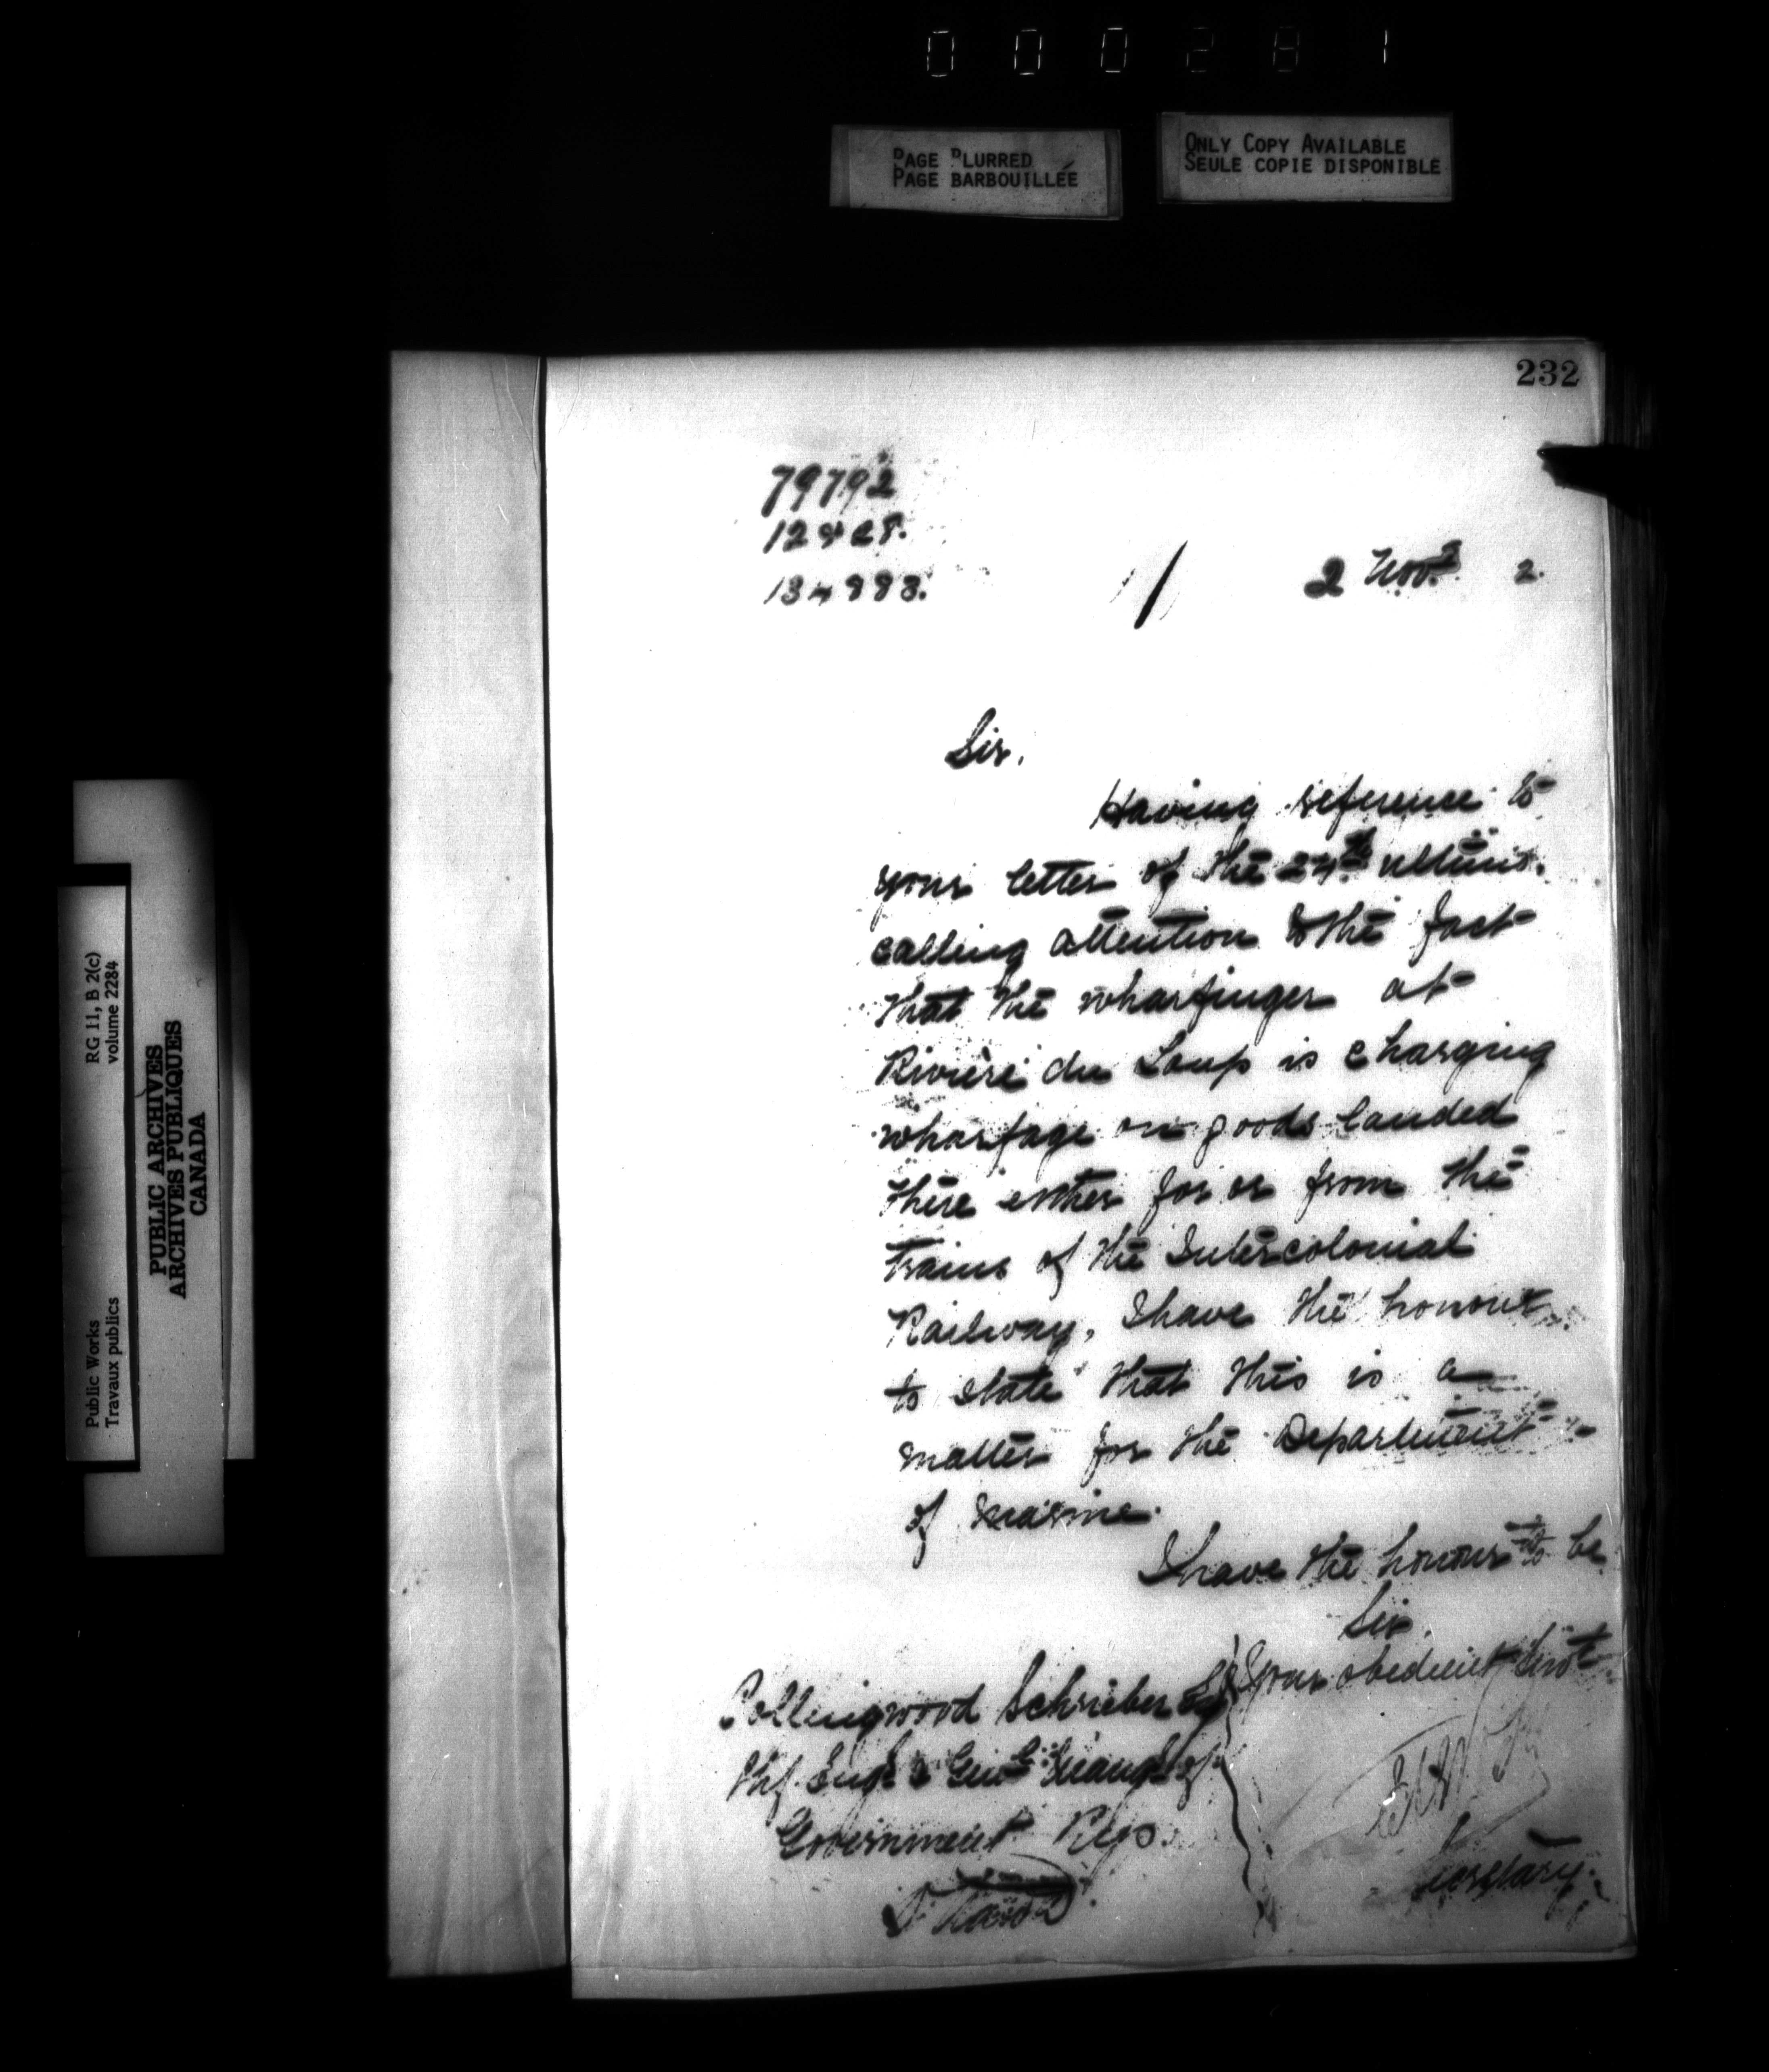 000281
PAGE BLURRED
PAGE BARBOUILLÉE
ONLY COPY AVAILABLE
SEULE COPIE DISPONIBLE
232
79792
2 Nov. 2.
Sir,
Having reference to
your letter of the 24th ultimo.
calling attention to the fact
that the wharfinger at
Rivière du Loup is charging
wharfage on goods landed
there either for or from the
trains of the Intercolonial
Railway, I have the honour
to state that this is a
matter for the Department
of Marine.
I have the honour to be
Sir,
Your obedient Servt
Collingwood Schrieber Esq
Chf. Engr & Genl Mangr of
Government Rys.
Ottawa
Secretary.
Public Works
Travaux publics
RG 11, B 2(c)
volume 2284
PUBLIC ARCHIVES
ARCHIVES PUBLIQUES
CANADA